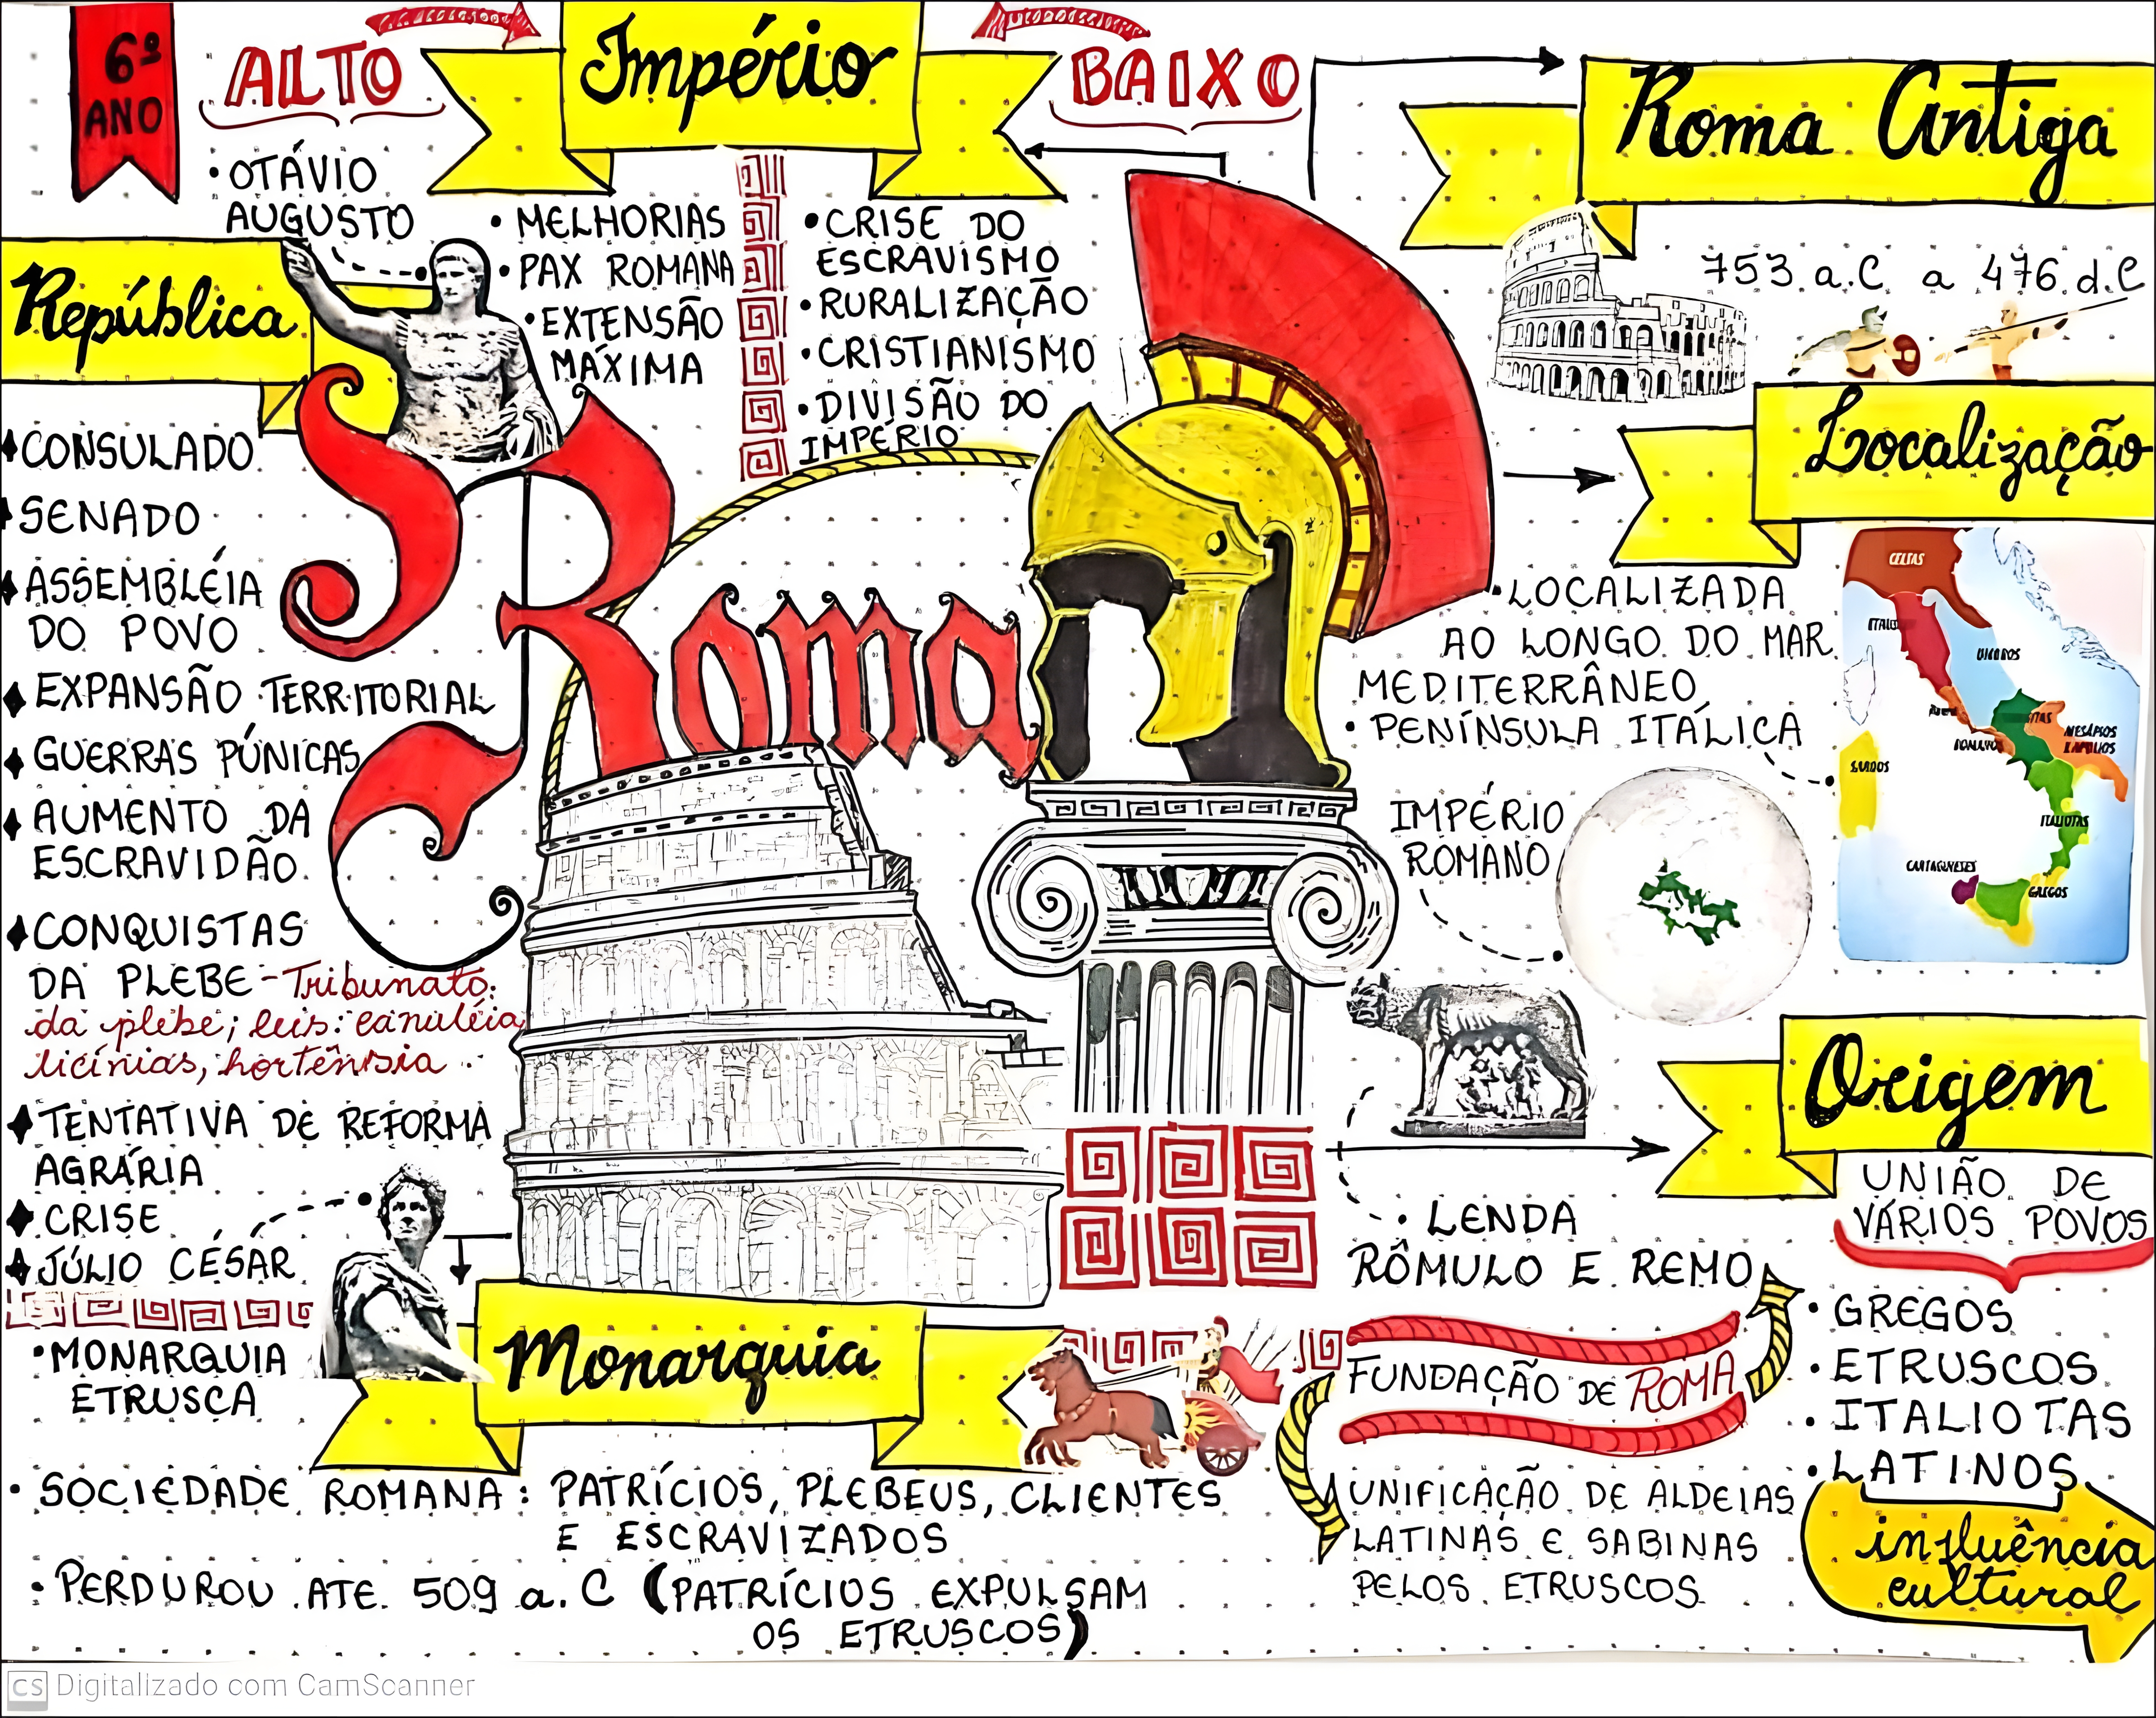 6º
ANO
ALTO
Império
BAIXO
• OTÁVIO
AUGUSTO
• MELHORIAS
• PAX ROMANA
• EXTENSÃO
MÁXIMA
• CRISE DO
ESCRAVISMO
• RURALIZAÇÃO
• CRISTIANISMO
• DIVISÃO DO
IMPÉRIO
Roma Antiga
753 a.C a 476 d.C
República
CONSULADO
SENADO
ASSEMBLÉIA
DO POVO
EXPANSÃO TERRITORIAL
GUERRAS PÚNICAS
AUMENTO DA
ESCRAVIDÃO
CONQUISTAS
DA PLEBE - Tribunato
da plebe; leis: canuléia
licínias, hortênsia
TENTATIVA DE REFORMA
AGRÁRIA
CRISE
JÚLIO CÉSAR
Roma
Localização
• LOCALIZADA
AO LONGO DO MAR
MEDITERRÂNEO
• PENÍNSULA ITÁLICA
IMPÉRIO
ROMANO
CELTAS
ITALIOTAS
CARTAGINESES
GREGOS
Origem
UNIÃO DE
VÁRIOS POVOS
• GREGOS
• ETRUSCOS
• ITALIOTAS
• LATINOS
influência
cultural
• LENDA
RÔMULO E REMO
FUNDAÇÃO DE ROMA
UNIFICAÇÃO DE ALDEIAS
LATINAS E SABINAS
PELOS ETRUSCOS
Monarquia
• MONARQUIA
ETRUSCA
• SOCIEDADE ROMANA: PATRÍCIOS, PLEBEUS, CLIENTES
E ESCRAVIZADOS
• PERDUROU ATE 509 a.C (PATRÍCIOS EXPULSAM
OS ETRUSCOS)
CS Digitalizado com CamScanner